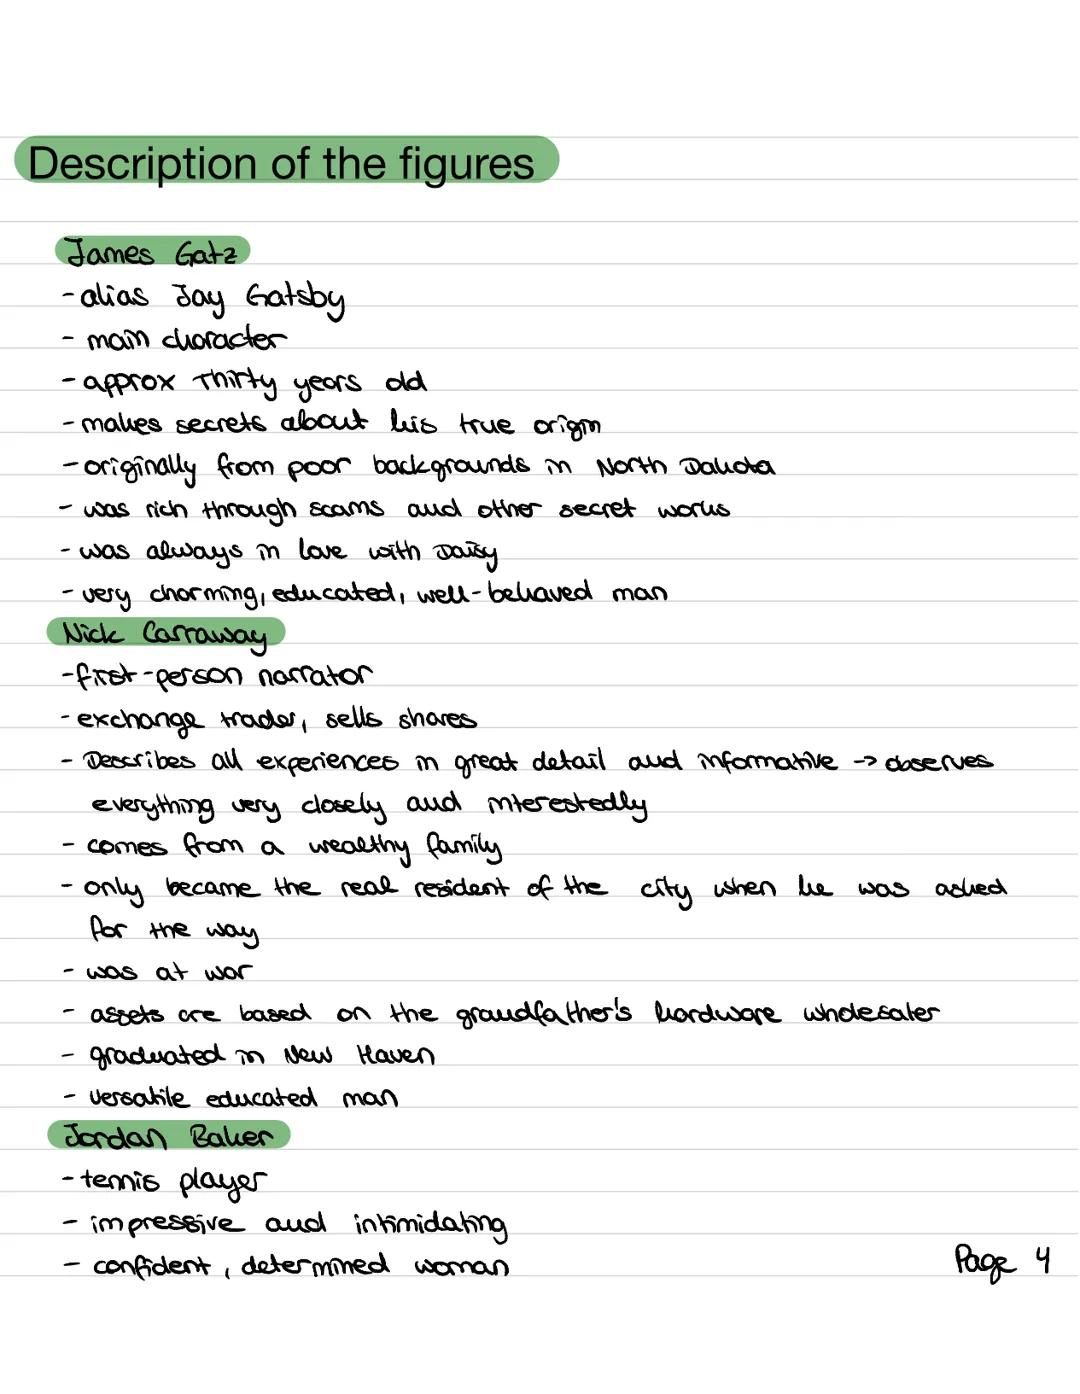 Description of the figures
James Gatz
- alias Jay Gatsby
- main character
- approx thirty years old
- makes secrets about his true origin
- originally from poor backgrounds in North Dakota
- was rich through scams and other secret works
- was always in love with Daisy
- very charming, educated, well-behaved man
Nick Carraway
- first-person narrator
- exchange trader, sells shares
- Describes all experiences in great detail and informative -> observes
everything very closely and interestedly
- comes from a wealthy family
- only became the real resident of the city when he was asked
for the way
- was at war
- assets are based on the grandfather's hardware wholesaler
- graduated in New Haven
- versatile educated man
Jordan Baker
- tennis player
- impressive and intimidating
- confident, determined woman
Page 4